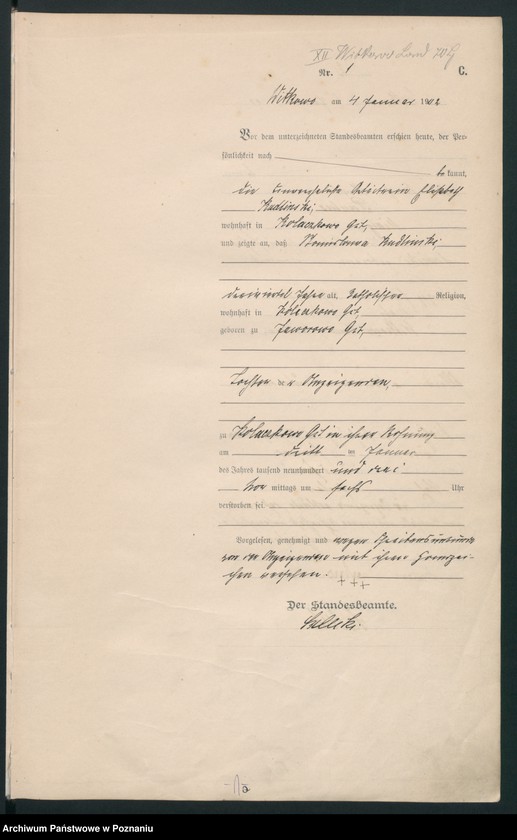 XII Witkowo Land 70 G
Nr. 1 C.
Witkowo am 4 Januar 1902
Vor dem unterzeichneten Standesbeamten erschien heute, der Per-
sönlichkeit nach
bekannt,
die unverehelichte Arbeiterin Elisabeth
Kudlinski,
wohnhaft in Kolaczkowo Gut,
und zeigte an, daß Stanislawa Kudlinski,
dreiviertel Jahre alt, katholischer Religion,
wohnhaft in Kolaczkowo Gut,
geboren zu Jaworowo Gut,
Tochter der Anzeigenden,
zu Kolaczkowo Gut in ihrer Wohnung
am dritten Januar
des Jahres tausend neunhundert und drei
Vor mittags um sechs Uhr
verstorben sei.
Vorgelesen, genehmigt und wegen Schreibensunkunde
von der Anzeigenden mit ihrem Handzei-
chen versehen.
+++
Der Standesbeamte.
Archiwum Państwowe w Poznaniu